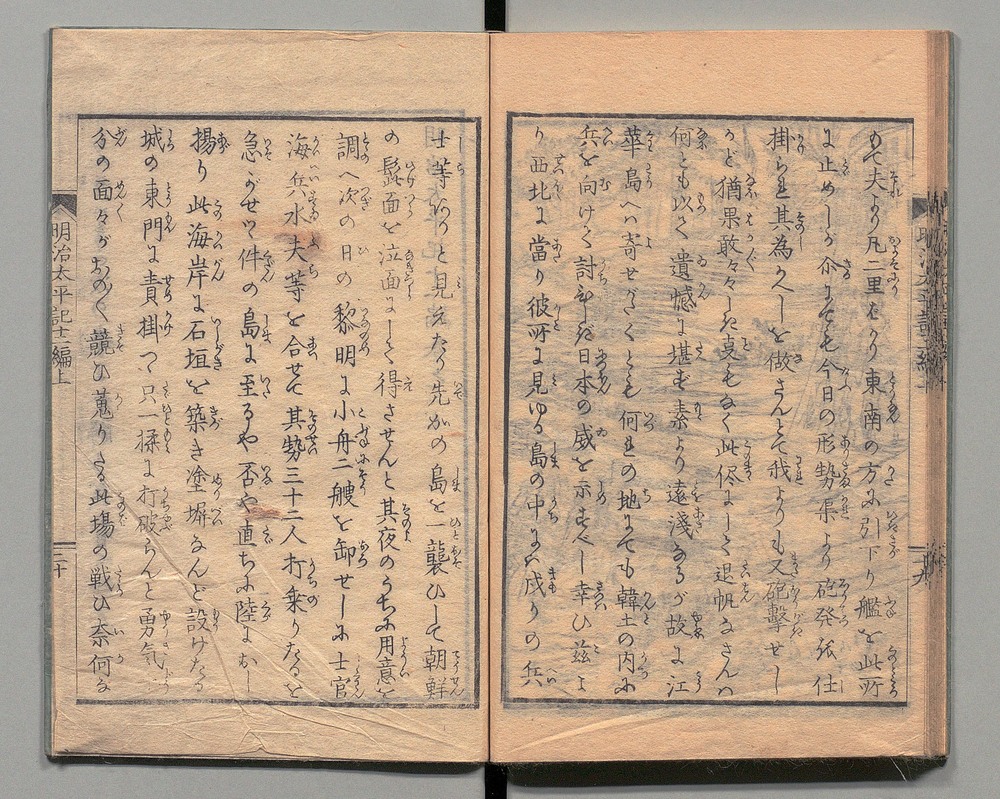 めて夫より凡二里をかり東南の方に引下り艦を此所
に止めしか介にても今日の形勢渠より砲発依仕
掛られ其為久しを做さんとて我よりも又砲撃せし
かど猶果敢々々しき支もなく此侭にして退帆なさんハ
何とも以て遺憾に堪ず素より遠浅なるが故に江
華島へハ寄せがたくとも何れの地にても韓土の内に
兵を向けて討取た日本の威を示すべし幸ひ茲よ
り西北に當り彼所に見ゆる島の中にハ戍りの兵
士等ありと見えたり先かの島を一襲ひして朝鮮
の髭面を泣面にして得させんと其夜のうちに用意を
調へ次の日の黎明に小舟二艘を卸せしに士官
海兵水夫等を合せて其勢三十二人打乗りたるを
急がせつ件の島に至るや否や直ちに陸にかし
揚り此海岸に石垣を築き塗塀なんど設けたる
城の東門に責掛つて只一揉に打破らんと勇気
分の面々がおのく競ひ蒐りたる此場の戦ひ奈何な
明治太平記十二編上
二十